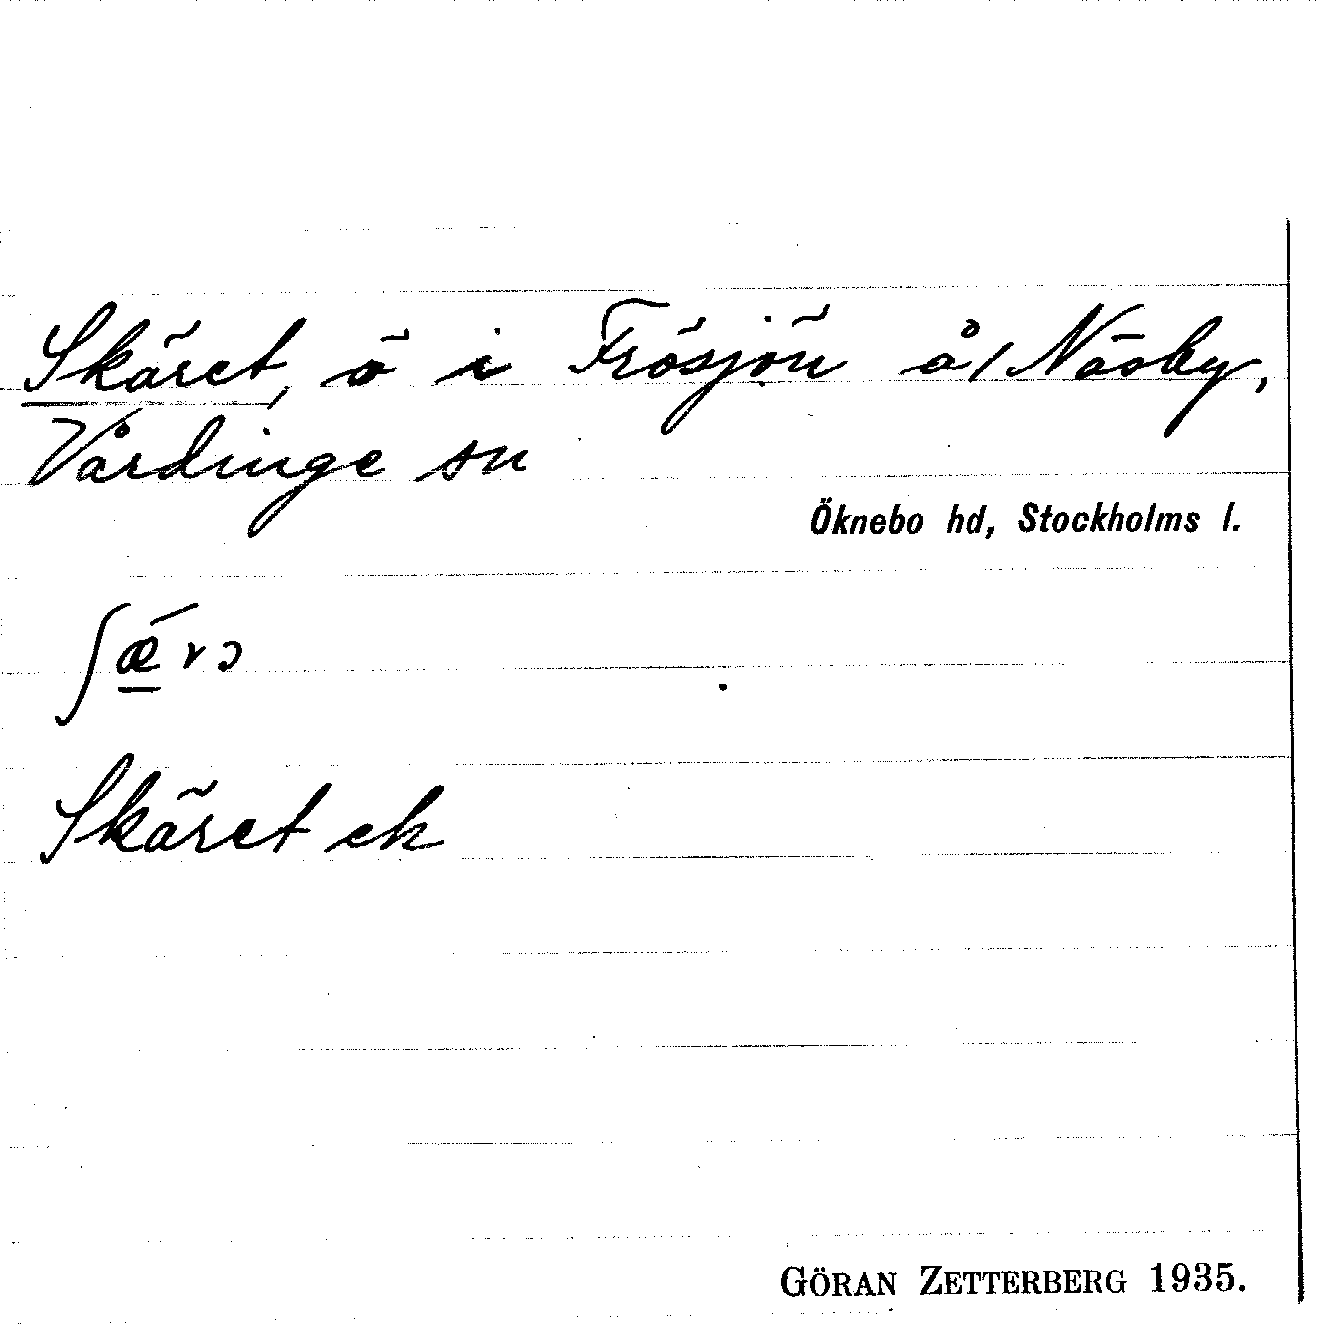 Skäret, ö i Frösjön å/ Näsby,
Vårdinge sn
Öknebo hd, Stockholms l.
ʃǽ̱rɔ
Skäret ek
GÖRAN ZETTERBERG 1935.